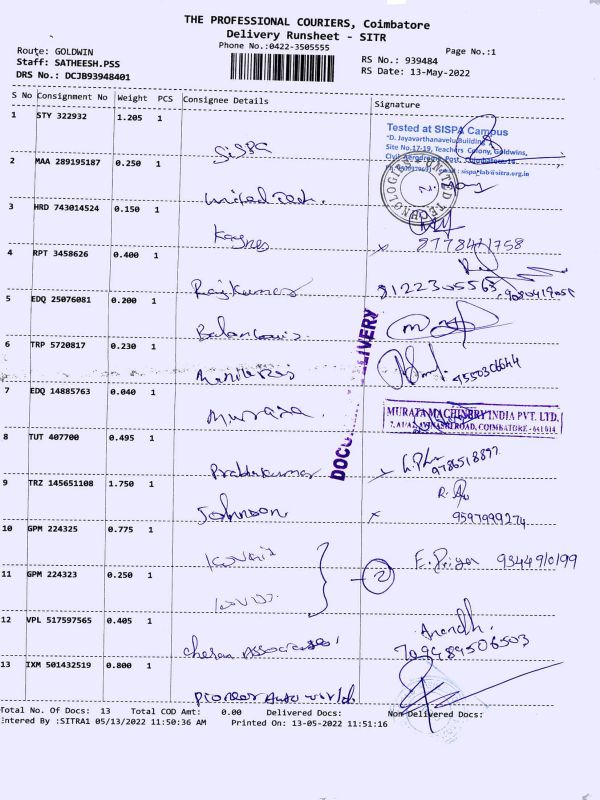 THE PROFESSIONAL COURIERS, Coimbatore
Delivery Runsheet - SITR
Phone No.:0422-3505555
Page No.:1
Route: GOLDWIN
Staff: SATHEESH.PSS
DRS No.: DCJB93948401
RS No.: 939484
RS Date: 13-May-2022
S No Consignment No Weight PCS Consignee Details Signature
1 STY 322932 1.205 1 SISPA
Tested at SISPA Campus
"D. Jayavarthanavelu Building"
Site No.17-19, Teachers Colony, Goldwins,
Civil Aerodrome Post, Coimbatore-14.
2 MAA 289195187 0.250 1 United Tech.
UNITED TECHNOLOGIES
3 HRD 743014524 0.150 1
4 RPT 3458626 0.400 1 Rajkumar
8122305563
5 EDQ 25076081 0.200 1
6 TRP 5720817 0.230 1
7 EDQ 14885763 0.040 1 Murata.
MURATA MACHINERY INDIA PVT. LTD.
AVINASHI ROAD, COIMBATORE - 641014.
8 TUT 407700 0.495 1 Prabhukumar
9786518897
9 TRZ 145651108 1.750 1 Johnson
9597999274
10 GPM 224325 0.775 1
E. Priya 9344910199
11 GPM 224323 0.250 1
2
12 VPL 517597565 0.405 1 Cheran Associates.
Anandh.
13 IXM 501432519 0.800 1 Pioneer Auto world
Total No. Of Docs: 13 Total COD Amt: 0.00 Delivered Docs: Non Delivered Docs:
Entered By :SITRA1 05/13/2022 11:50:36 AM Printed On: 13-05-2022 11:51:16